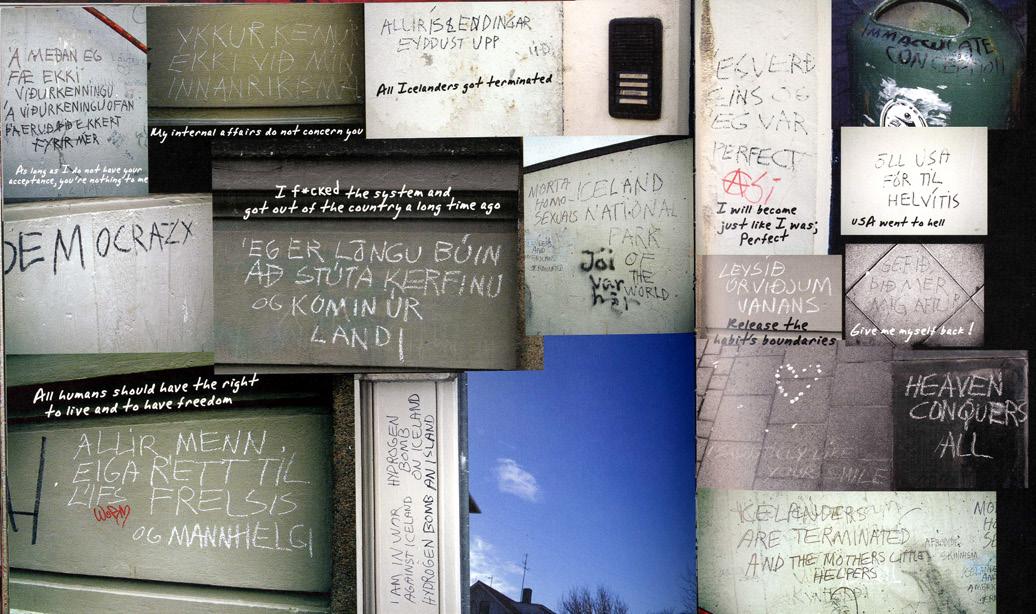 'A MEÐAN EG
FÆ EKKI
VIÐURKENNINGU
'A VIÐURKENNINGU OFAN
ÞÁ ERUÐ ÞIÐ EKKERT
FYRIR MER
As long as I do not have your
acceptance, you're nothing to me
YKKUR KEMUR
EKKI VIÐ MIN
INNANRIKSMA
My internal affairs do not concern you
ALLIR ÍSLENDINGAR
EYDDUST UPP
All Icelanders got terminated
EG VERÐ
EINS OG
EG VAR
PERFECT
I will become
just like I was;
Perfect
IMMACULATE
CONCEPTION
ÖLL USA
FÓR TIL
HELVÍTIS
USA went to hell
DEMOCRAZY
I f*cked the system and
got out of the country a long time ago
'EG ER LÖNGU BÚIN
AÐ STÚTA KERFINU
OG KOMIN ÚR
LANDI
MORTA
HOMO
SEXUALS
ICELAND
NATIONAL
PARK
OF
THE
WORLD
Jói
var
hér
LEYSIÐ
ÚR VIÐJUM
VANANS
Release the
habit's boundaries
GEFIÐ
ÞIÐ MER
MIG AFTUR
Give me myself back!
All humans should have the right
to live and to have freedom
H
ALLIR MENN
EIGA RETT TIL
LIFS FRELSIS
OG MANNHELGI
I AM IN WAR
AGAINST ICELAND
HYDROGEN BOMB AN ISLAND
HYDROGEN
BOMB
ON ICELAND
HEAVEN
CONQUERS
ALL
ICELANDERS
ARE TERMINATED
AND THE MOTHERS LITTLE
HELPERS